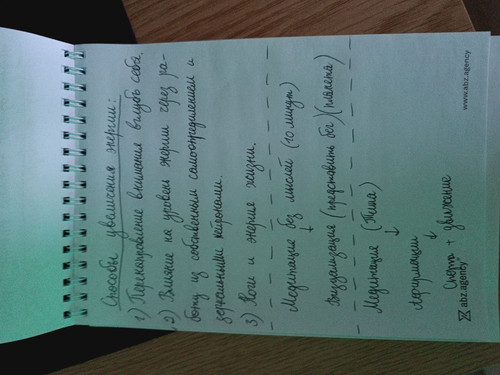 Способы увеличения энергии:
1) Перенаправление внимания вглубь себя.
2) Влияние на уровень энергии через ра-
боту из собственным самоопределением и
зеркальными нейронами.
3) Ноги и энергия жизни.
Медитация без мыслей (10 минут)
Визуализация (представить бег) (планета)
Медитация (Тита)
Аффирмации
Спорт + движение
abz.agency
www.abz.agency